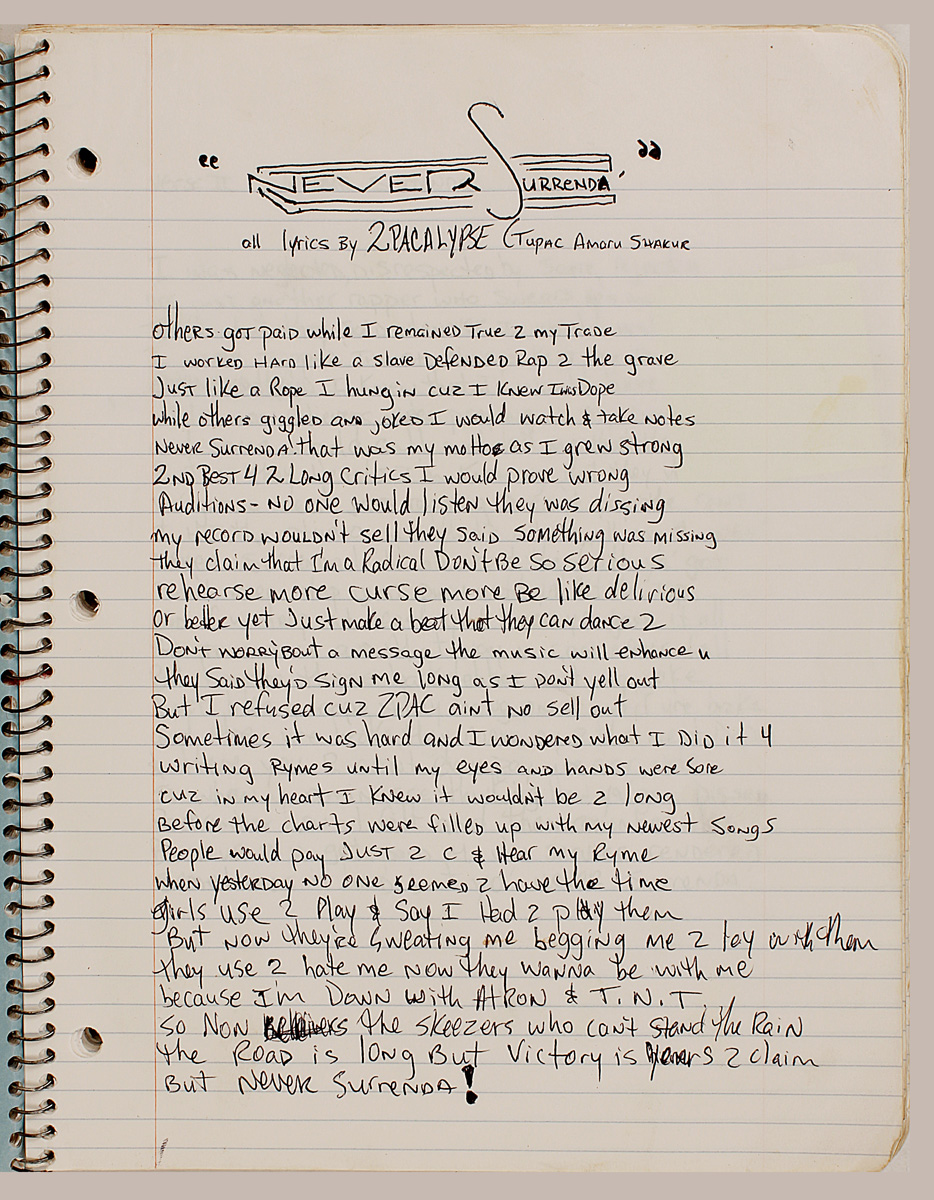 "NEVER SURRENDA'"
all lyrics By 2PACALYPSE (Tupac Amaru Shakur
others got paid while I remained True 2 my Trade
I worked Hard like a slave Defended Rap 2 the grave
Just like a Rope I hung in cuz I Knew I was Dope
while others giggled and joked I would watch & take notes
Never Surrenda' that was my motto as I grew strong
2nd Best 4 2 Long Critics I would prove wrong
Auditions - No one would listen they was dissing
my record wouldn't sell they said something was missing
they claim that I'm a Radical Don't Be so serious
rehearse more curse more Be like delirious
Or better yet Just make a beat that they can dance 2
Don't worry bout a message the music will enhance u
they said they'd sign me long as I don't yell out
But I refused cuz 2PAC aint no sell out
Sometimes it was hard and I wondered what I Did it 4
writing Rymes until my eyes and hands were sore
cuz in my heart I Knew it wouldn't be 2 long
Before the charts were filled up with my newest songs
People would pay Just 2 c & Hear my Ryme
when yesterday No one seemed 2 have the time
girls use 2 Play & Say I Had 2 pay them
But now they're sweating me begging me 2 lay with them
they use 2 hate me now they wanna be with me
because I'm Down with Akron & T.N.T.
So Non the skeezers who can't stand the Rain
the Road is long But Victory is yours 2 claim
But Never Surrenda!